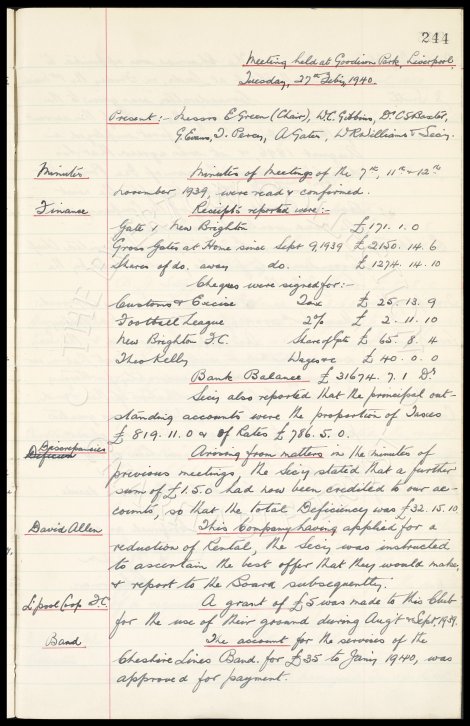 244
Meeting held at Goodison Park, Liverpool,
Tuesday, 27th Feby, 1940.
Present :- Messrs E. Green (Chair), W.C. Gibbins, Dr C.S. Baxter,
G. Evans, T. Percy, A. Gates, W.R. Williams & Secy.
Minutes Minutes of Meetings of the 7th, 11th & 12th
November, 1939, were read & confirmed.
Finance Receipts reported were:-
Gate v New Brighton £171. 1. 0
Gross Gates at Home since Sept 9, 1939 £ 2150. 14. 6
Shares of do. away do. £ 1274. 14. 10
Cheques were signed for:-
Customs & Excise Tax £ 25. 13. 9
Football League 2% £ 2. 11. 10
New Brighton F.C. Share of Gate £ 65. 8. 4
Theo Kelly Wages &c £ 40. 0. 0
Bank Balance £ 31674. 7. 1 Dr
Secy also reported that the principal out-
standing accounts were the proportion of Taxes
£ 819. 11. 0 & of Rates £ 786. 5. 0.
Discrepancies Arising from matters in the minutes of
previous meetings, the Secy stated that a further
sum of £1.5.0 had now been credited to our ac-
counts, so that the total Deficiency was £32. 15. 10
David Allen This Company having applied for a
reduction of Rental, the Secy was instructed
to ascertain the best offer that they would make,
& report to the Board subsequently.
L'pool Coop F.C. A grant of £5 was made to this Club
for the use of their ground during Aug't & Sept. 1939.
Band The account for the services of the
Cheshire Lines Band, for £35 to Jan'y 1940, was
approved for payment.